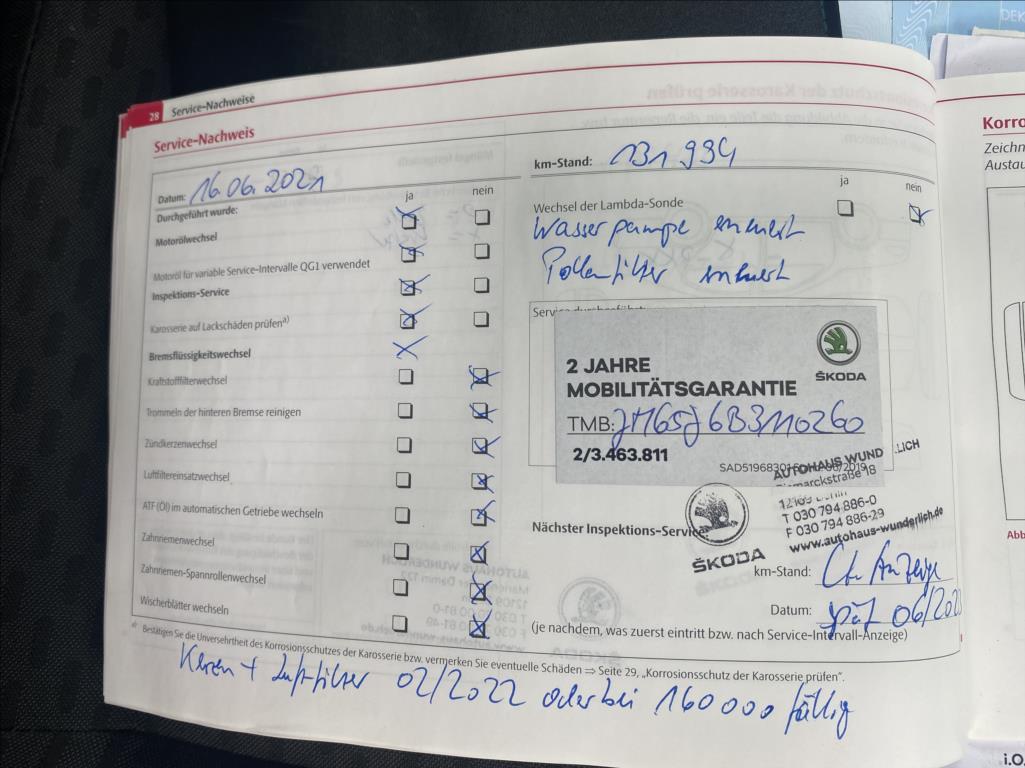 DEK
28 Service-Nachweise
Service-Nachweis
Datum: 16.06.2021
km-Stand: 131 934
Durchgeführt wurde:
ja
nein
Motorölwechsel
Motoröl für variable Service-Intervalle QG1 verwendet
Inspektions-Service
Karosserie auf Lackschäden prüfen a)
Bremsflüssigkeitswechsel
Kraftstofffilterwechsel
Trommeln der hinteren Bremse reinigen
Zündkerzenwechsel
Luftfiltereinsatzwechsel
ATF (Öl) im automatischen Getriebe wechseln
Zahnriemenwechsel
Zahnriemen-Spannrollenwechsel
Wischerblätter wechseln
ja
nein
Wechsel der Lambda-Sonde
Wasserpumpe erneuert
Pollenfilter erneuert
Service durchgeführt:
2 JAHRE
MOBILITÄTSGARANTIE
ŠKODA
TMB:
2/3.463.811
AUTOHAUS WUND LICH
Bismarckstraße 18
T 030 794 886-0
F 030 794 886-29
www.autohaus-wunderlich.de
ŠKODA
Nächster Inspektions-Service:
km-Stand: Anzeige
Datum: spät 06/202
(je nachdem, was zuerst eintritt bzw. nach Service-Intervall-Anzeige)
a) Bestätigen Sie die Unversehrtheit des Korrosionsschutzes der Karosserie bzw. vermerken Sie eventuelle Schäden ⇒ Seite 29, „Korrosionsschutz der Karosserie prüfen“.
Kerzen + Luftfilter 02/2022 oder bei 160000 fällig
Korro
Zeichn
Austau
Abb
i.O.